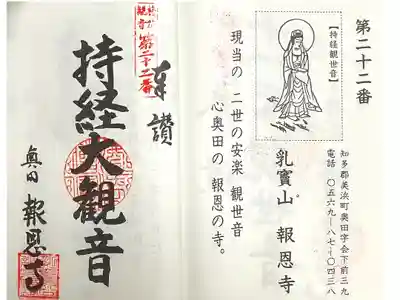 第二十二番
【持経観世音】
知多郡美浜町奥田字会下前三九
電話 〇五六九ー八七ー〇四三八
乳竇山 報恩寺
現当の 二世の安楽 観世音
心奥田の 報恩の寺。
奉讃
第二十二番
持経大観音
奥田 報恩寺